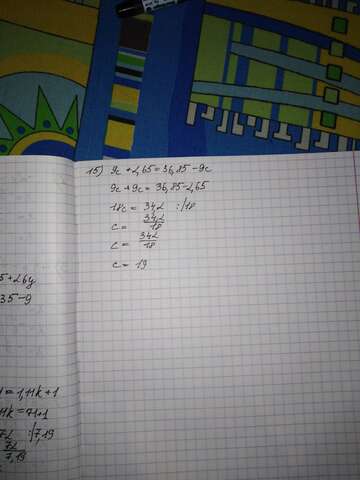 15) 9c + 2,65 = 36,85 - 9c
9c + 9c = 36,85 - 2,65
18c = 34,2 :/18
c = 34,2
18
c = 342
18
c = 19
5 + 26y
35 - 9
= 1,11k + 1
11k = 71+1
72 :/7,19
72
7,19